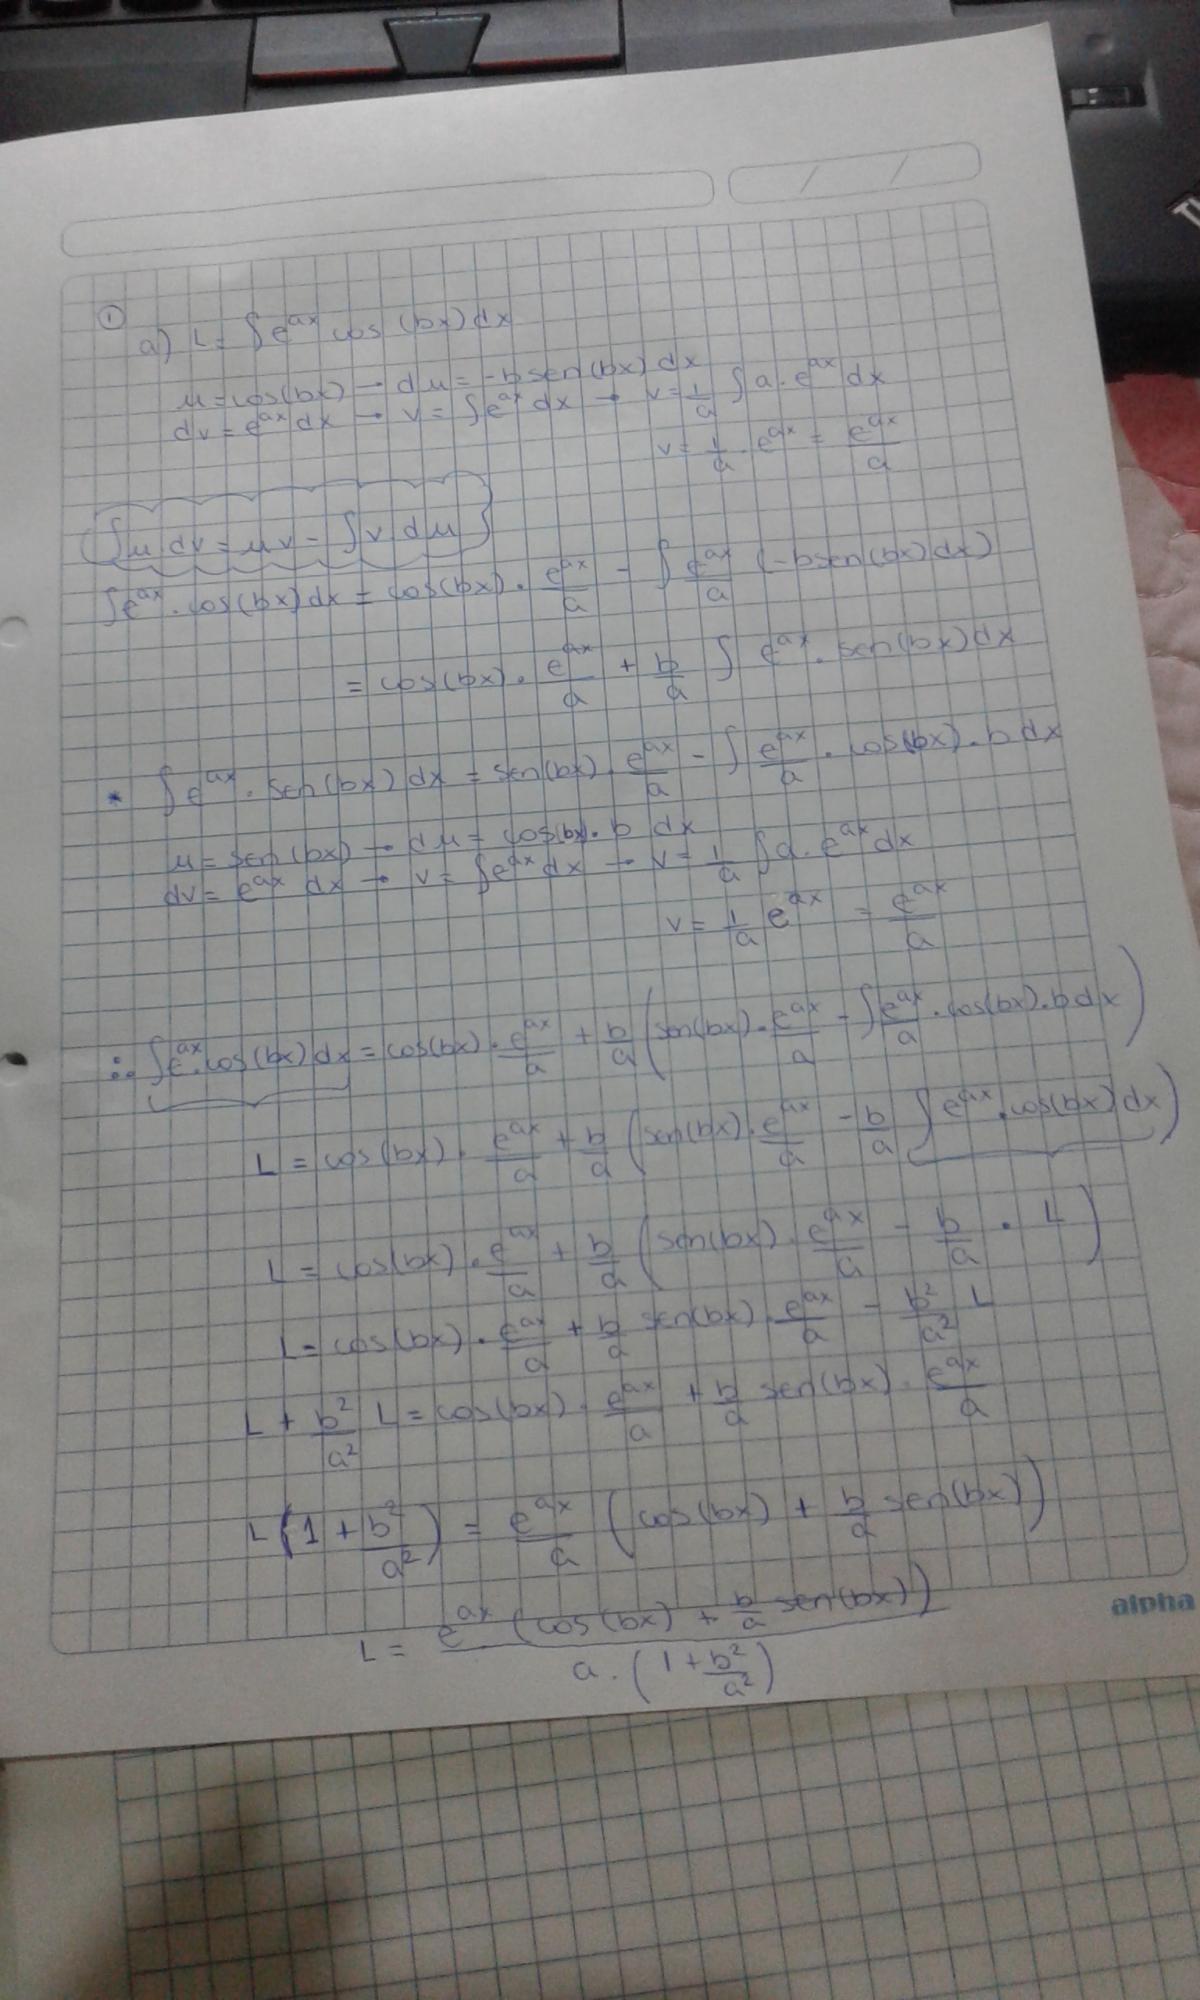 ①
a) L = ∫ e^{ax} cos (bx) dx
μ = cos(bx) → dμ = -b sen(bx) dx
dv = e^{ax} dx → v = ∫ e^{ax} dx → v = 1/a ∫ a · e^{ax} dx
v = 1/a · e^{ax} = e^{ax}/a
∫ μ dv = μv - ∫ v dμ
∫ e^{ax} · cos(bx) dx = cos(bx) · e^{ax}/a - ∫ e^{ax}/a (-b sen(bx) dx)
= cos(bx) · e^{ax}/a + b/a ∫ e^{ax} · sen(bx) dx
* ∫ e^{ax} · sen(bx) dx = sen(bx) · e^{ax}/a - ∫ e^{ax}/a · cos(bx) · b dx
μ = sen(bx) → dμ = cos(bx) · b dx
dv = e^{ax} dx → v = ∫ e^{ax} dx → v = 1/a ∫ a · e^{ax} dx
v = 1/a e^{ax} = e^{ax}/a
∴ ∫ e^{ax} · cos(bx) dx = cos(bx) · e^{ax}/a + b/a (sen(bx) · e^{ax}/a - ∫ e^{ax}/a · cos(bx) · b dx)
L = cos(bx) · e^{ax}/a + b/a (sen(bx) · e^{ax}/a - b/a ∫ e^{ax} · cos(bx) dx)
L = cos(bx) · e^{ax}/a + b/a (sen(bx) · e^{ax}/a - b/a · L)
L = cos(bx) · e^{ax}/a + b/a sen(bx) · e^{ax}/a - b²/a² L
L + b²/a² L = cos(bx) · e^{ax}/a + b/a sen(bx) · e^{ax}/a
L (1 + b²/a²) = e^{ax}/a (cos(bx) + b/a sen(bx))
alpha
L = e^{ax} (cos(bx) + b/a sen(bx)) / a · (1 + b²/a²)